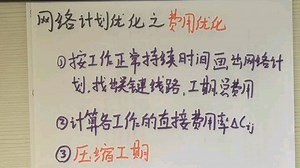 网络计划优化之费用优化
①按工作正常持续时间画出网络计
划,找出关键线路、工期、总费用
②计算各工作的直接费用率ΔCij
③压缩工期